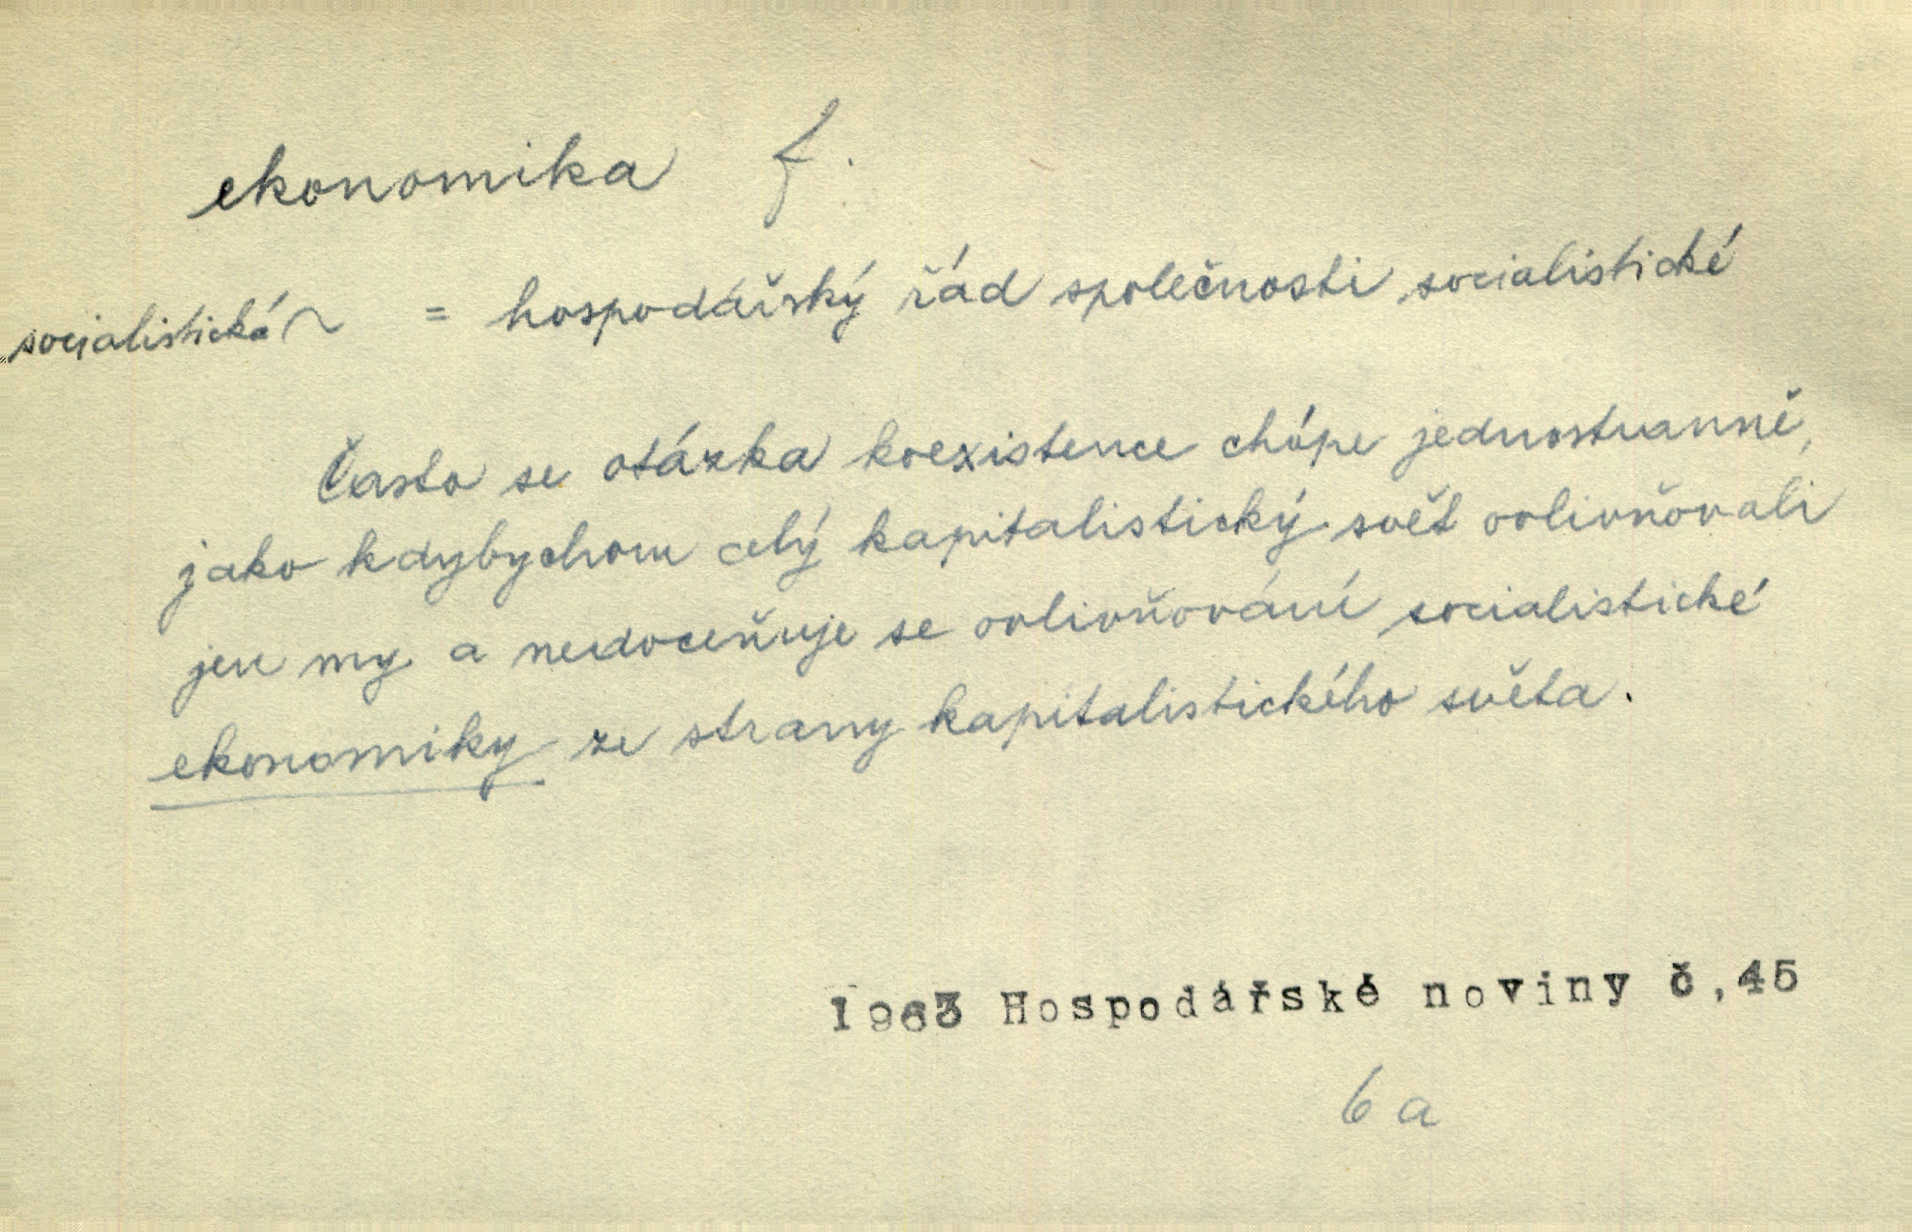 ekonomika f.
socialistická ~ = hospodářský řád společnosti socialistické
Často se otázka koexistence chápe jednostranně,
jako kdybychom celý kapitalistický svět ovlivňovali
jen my a nedoceňuje se ovlivňování socialistické
ekonomiky ze strany kapitalistického světa.
1963 Hospodářské noviny č,45
6 a